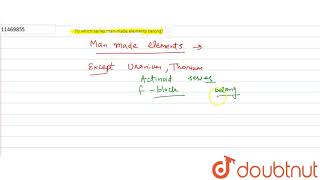 11469855
To which series man-made elements belong?
Man made elements →
Except Uranium, Thorium
Actinoid series
f-block belong
doubtnut